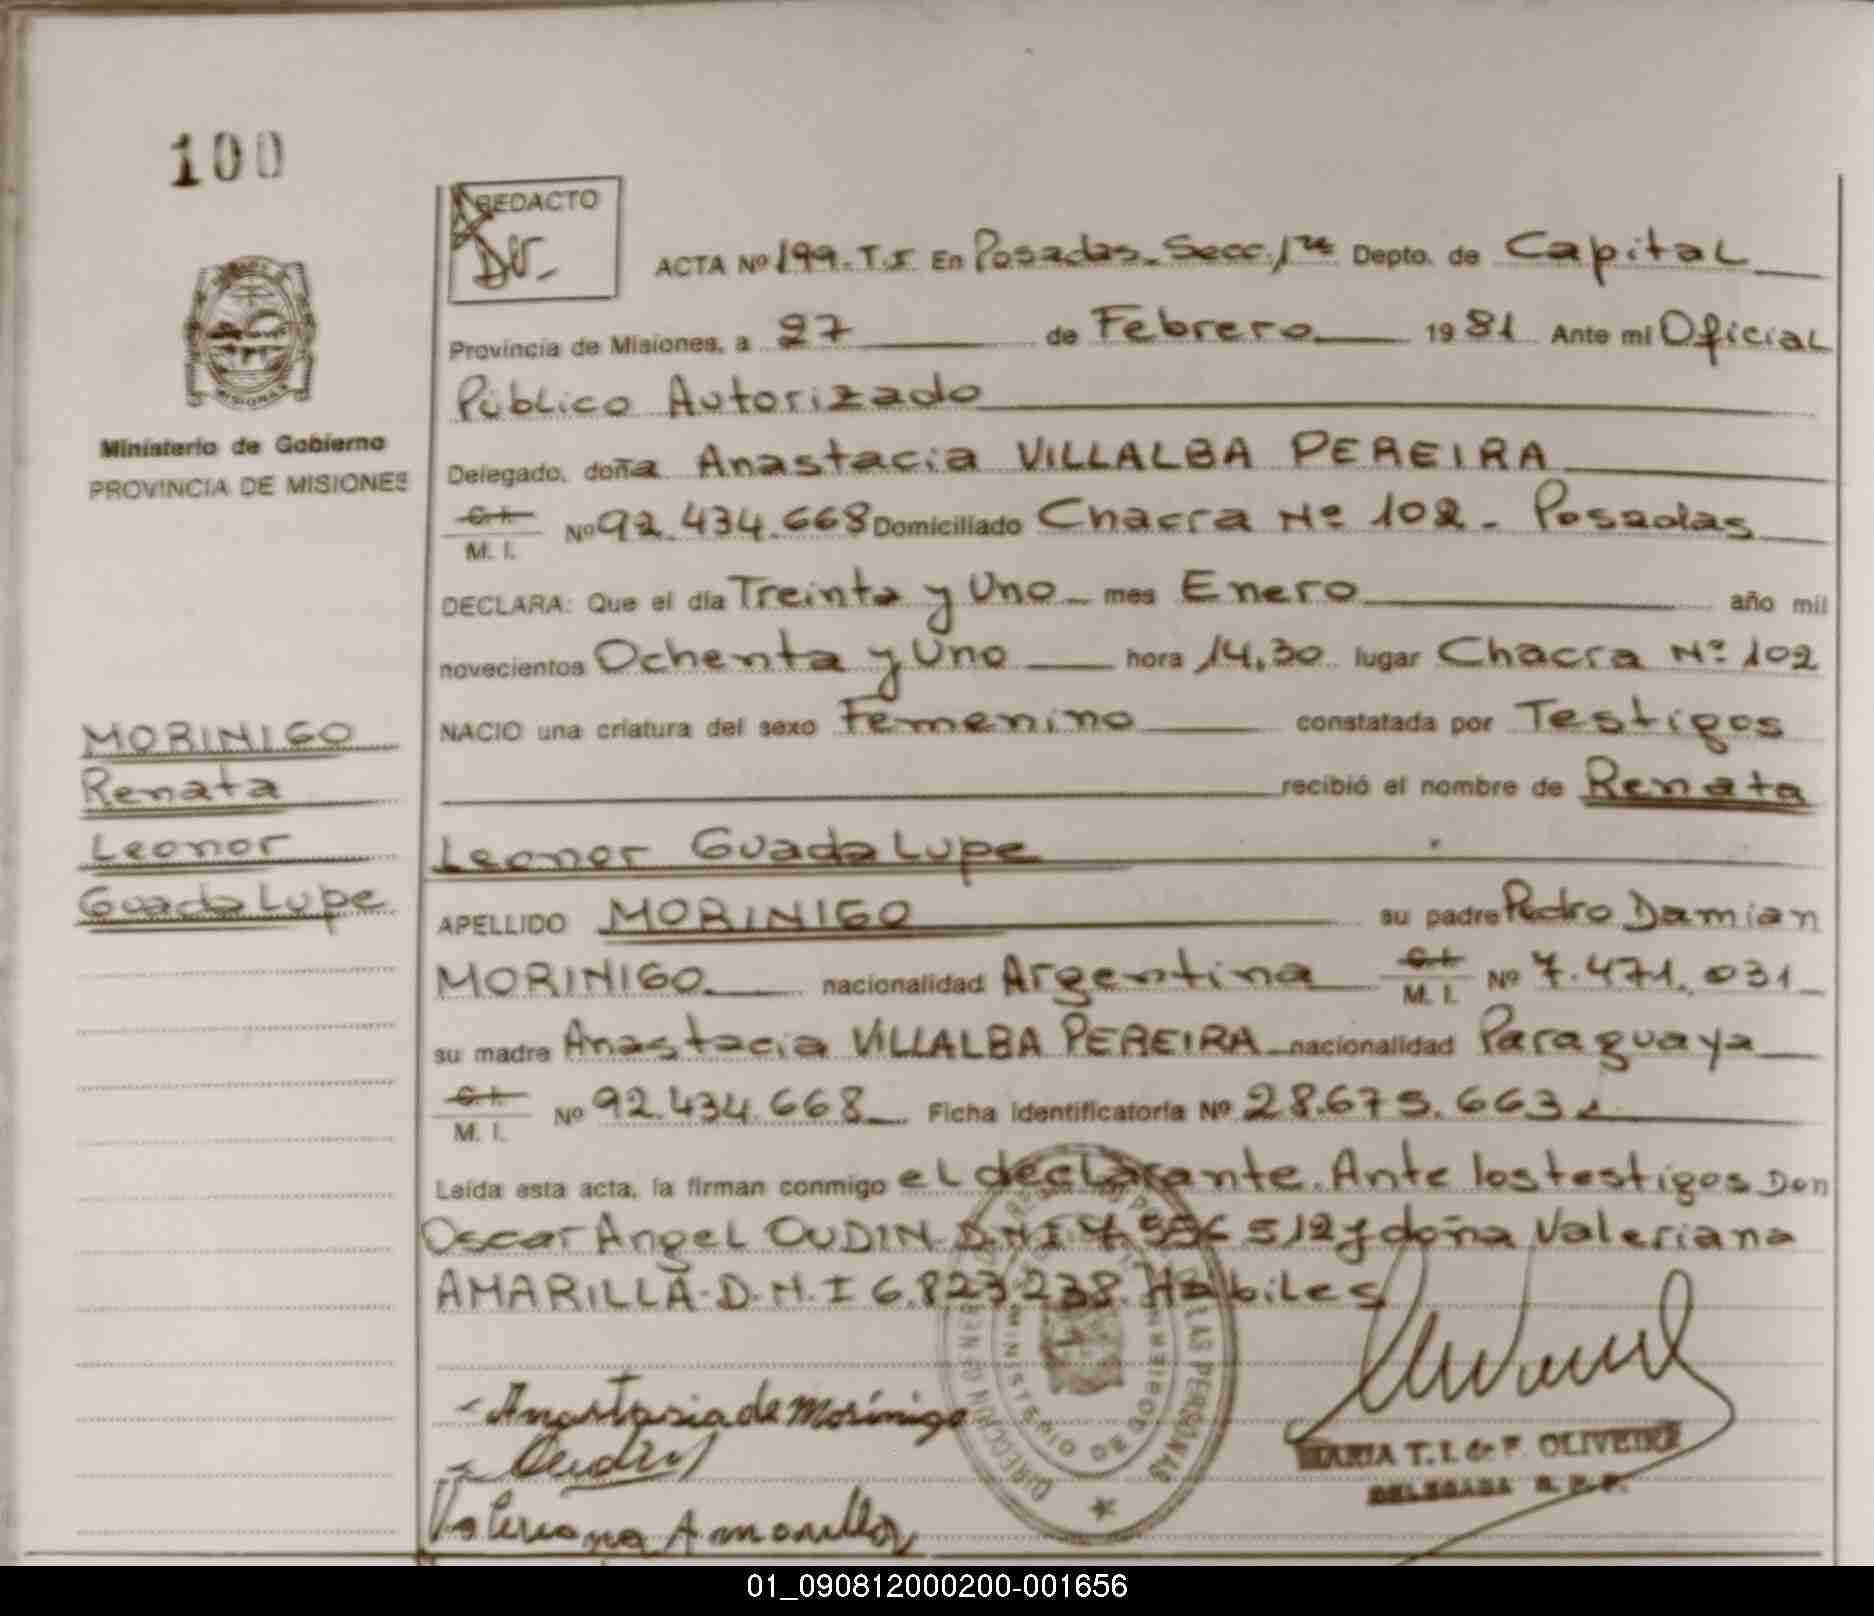 100
REDACTO
ACTA Nº 199-T.I En Posadas-Secc.1ra Depto. de Capital
Provincia de Misiones, a 27 de Febrero 1981 Ante mí Oficial
Público Autorizado
Ministerio de Gobierno
PROVINCIA DE MISIONES
Delegado, doña Anastacia VILLALBA PEREIRA
C.I.
M. I. Nº 92.434.668 Domiciliado Chacra Nº 102 - Posadas
DECLARA: Que el día Treinta y Uno mes Enero año mil
novecientos Ochenta y Uno hora 14,30 lugar Chacra Nº 102
NACIO una criatura del sexo Femenino constatada por Testigos
recibió el nombre de Renata
Leonor Guadalupe
MORINIGO
Renata
Leonor
Guadalupe
APELLIDO MORINIGO su padre Pedro Damian
MORINIGO nacionalidad Argentina C.I.
M. I. Nº 7.471.031
su madre Anastacia VILLALBA PEREIRA nacionalidad Paraguaya
C.I.
M. I. Nº 92.434.668 Ficha Identificatoria Nº 28.675.663
Leída esta acta, la firman conmigo el declarante. Ante los testigos Don
Oscar Angel OUDIN-D.N.I 512 y doña Valeriana
AMARILLA-D.N.I 6.823.238. Habiles
DIRECCION GENERAL DE LAS PERSONAS
MINISTERIO DE GOBIERNO
Anastasia de Morínigo
Oudin
Valeriana Amarilla
MARIA T. I. de F. OLIVEIRA
DELEGADA R. P. P.
01_090812000200-001656